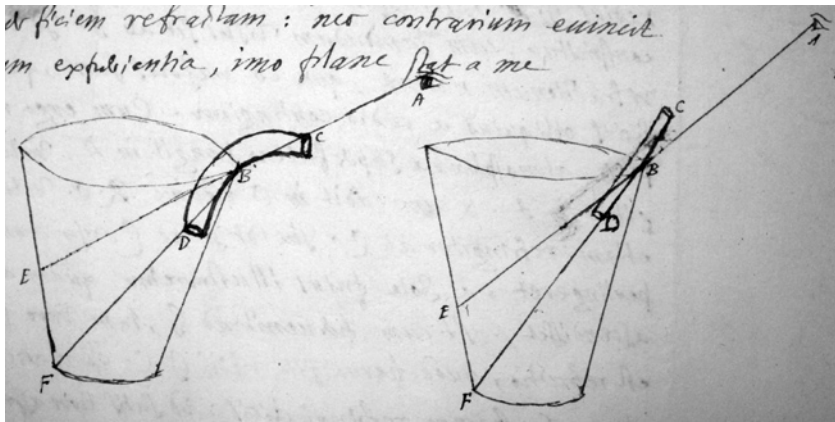 ficiem refractam : nec contrarium evincit
m experientia, imo plane stat a me
A
B
C
D
E
F
A
B
C
D
E
F